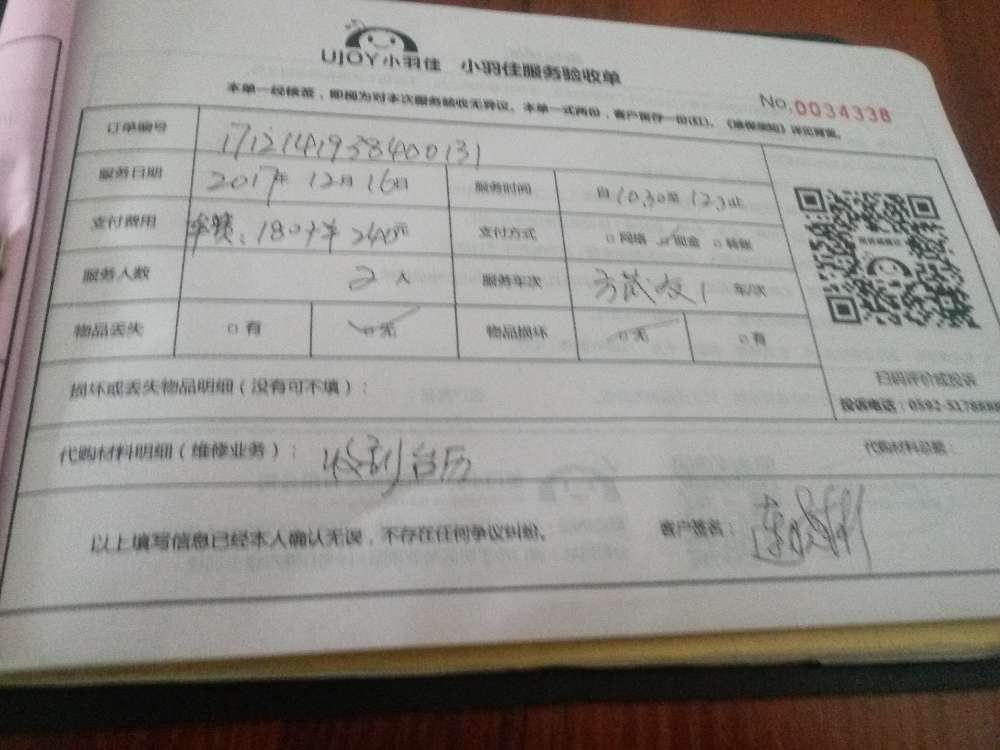 UJOY小羽佳 小羽佳服务验收单
No.0034338
本单一经核签，即视为对本次服务验收无异议。本单一式两份，客户留存一份(红)。《维修须知》详见背面。
订单编号 1712141938400131
服务日期 2017年 12月 16日 服务时间 自 10.30至 12.3止
支付费用 240元 支付方式 □网络 □现金 □转账
服务人数 2 人 服务车次 1 车/次
物品丢失 □有 □无 物品损坏 □无 □有
扫码评价或投诉
损坏或丢失物品明细（没有可不填）：
投诉电话：0592-5178888
代购材料明细（维修业务）： 收到台历 代购材料总额：
以上填写信息已经本人确认无误，不存在任何争议纠纷。 客户签名：